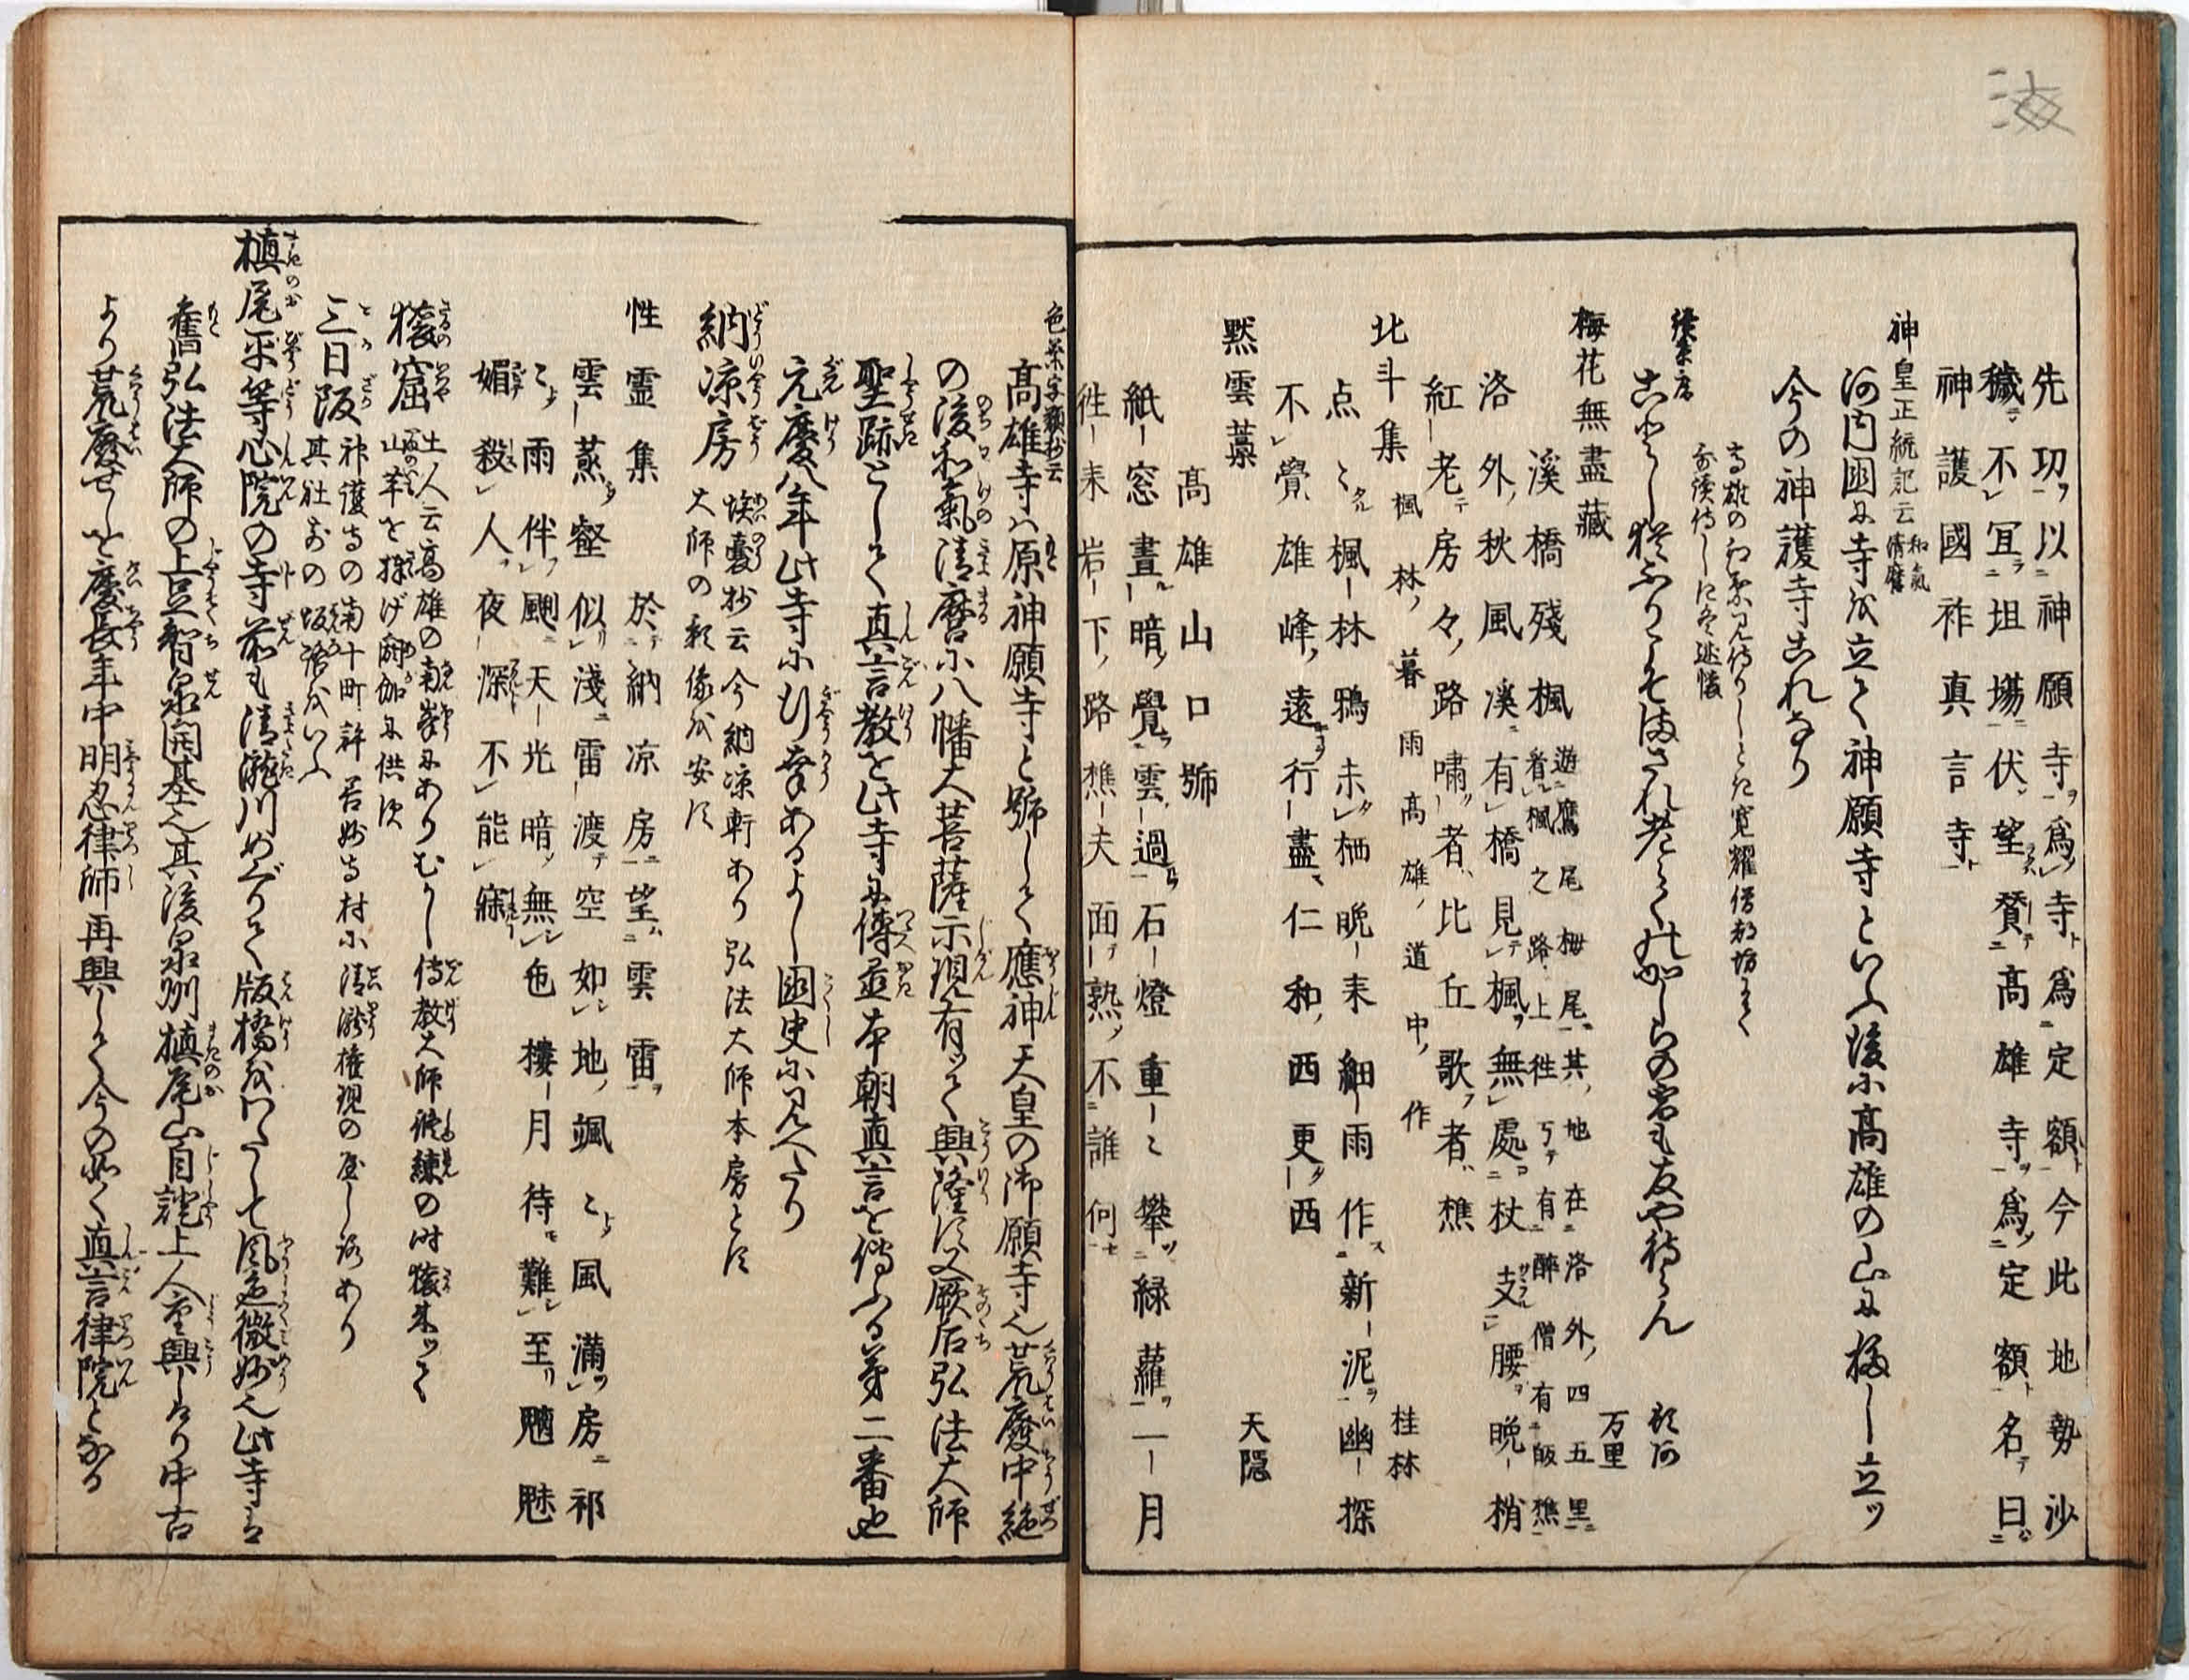 先功以神願寺爲寺爲定額今此地勢沙
穢不冝坦場伏望賛高雄寺爲定額名曰
神護國祚真言寺
神皇正統記云和氣清麿
河内國に寺を立て神願寺といふ後に高雄の山に移し立ッ
今の神護寺これなり
梅花無盡藏
溪橋殘楓 遊鷹尾栂尾其地在洛外四五里看楓之路上徃々有醉僧有皈樵 万里
洛外秋風溪有橋見楓無處杖支腰晩梢
紅老房々路嘯者比丘歌者樵
北斗集 楓林暮雨高雄道中作 桂林
点〻楓林鴉未栖晩来細雨作新泥幽探
不覺雄峰遠行盡仁和西更西
黙雲藁 天隠
高雄山口號
紙窓晝暗覺雲過石燈重〻攀緑蘿一月
徃来岩下路樵夫面熟不誰何
色葉字類抄云
高雄寺は原神願寺と號して應神天皇の御願寺也荒廢中絶
の後和氣清麿に八幡大菩薩示現有って興隆す又厥后弘法大師
聖跡として真言教を此寺に傳並本朝真言を傳ふる第二番也
元慶八年此寺に行幸あるよし國史に見へたり
納凉房 埃嚢抄云今納凉軒あり弘法大師本房とす
大師の影像を安す
性霊集 於納凉房望雲雷
雲蒸壑似淺雷渡空如地颯〻風満房祁
〻雨伴颸天光暗無色樓月待難至魑魅
媚殺人夜深不能寐
猿窟 土人云高雄の南峯にありむかし傳教大師修練の時猿来ッて
山芋を捧げ閼伽に供す
三日阪 神護寺の南十町許若妙寺村に清瀧権現の屋し路あり
其社前の坂路をいふ
槙尾平等心院の寺前も清瀧川めぐりて版橋をわたして風色微妙也此寺は
舊弘法大師の上足智泉開基也其後泉州槙尾山自謐上人重興しけり中古
より荒廢せしを慶長年中明忍律師再興して今の如く真言律院となる